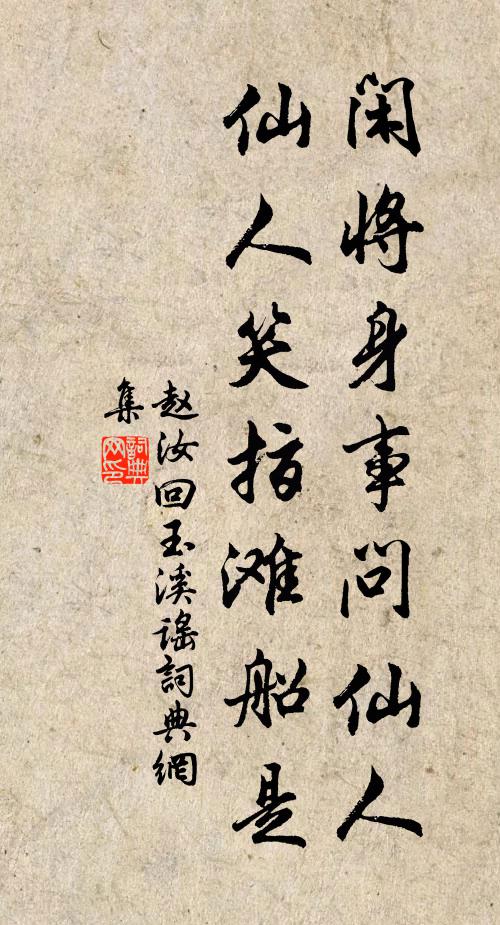 闲将身事问仙人
仙人笑指滩船是
赵汝回玉溪谣詞典網
集
詞典网印